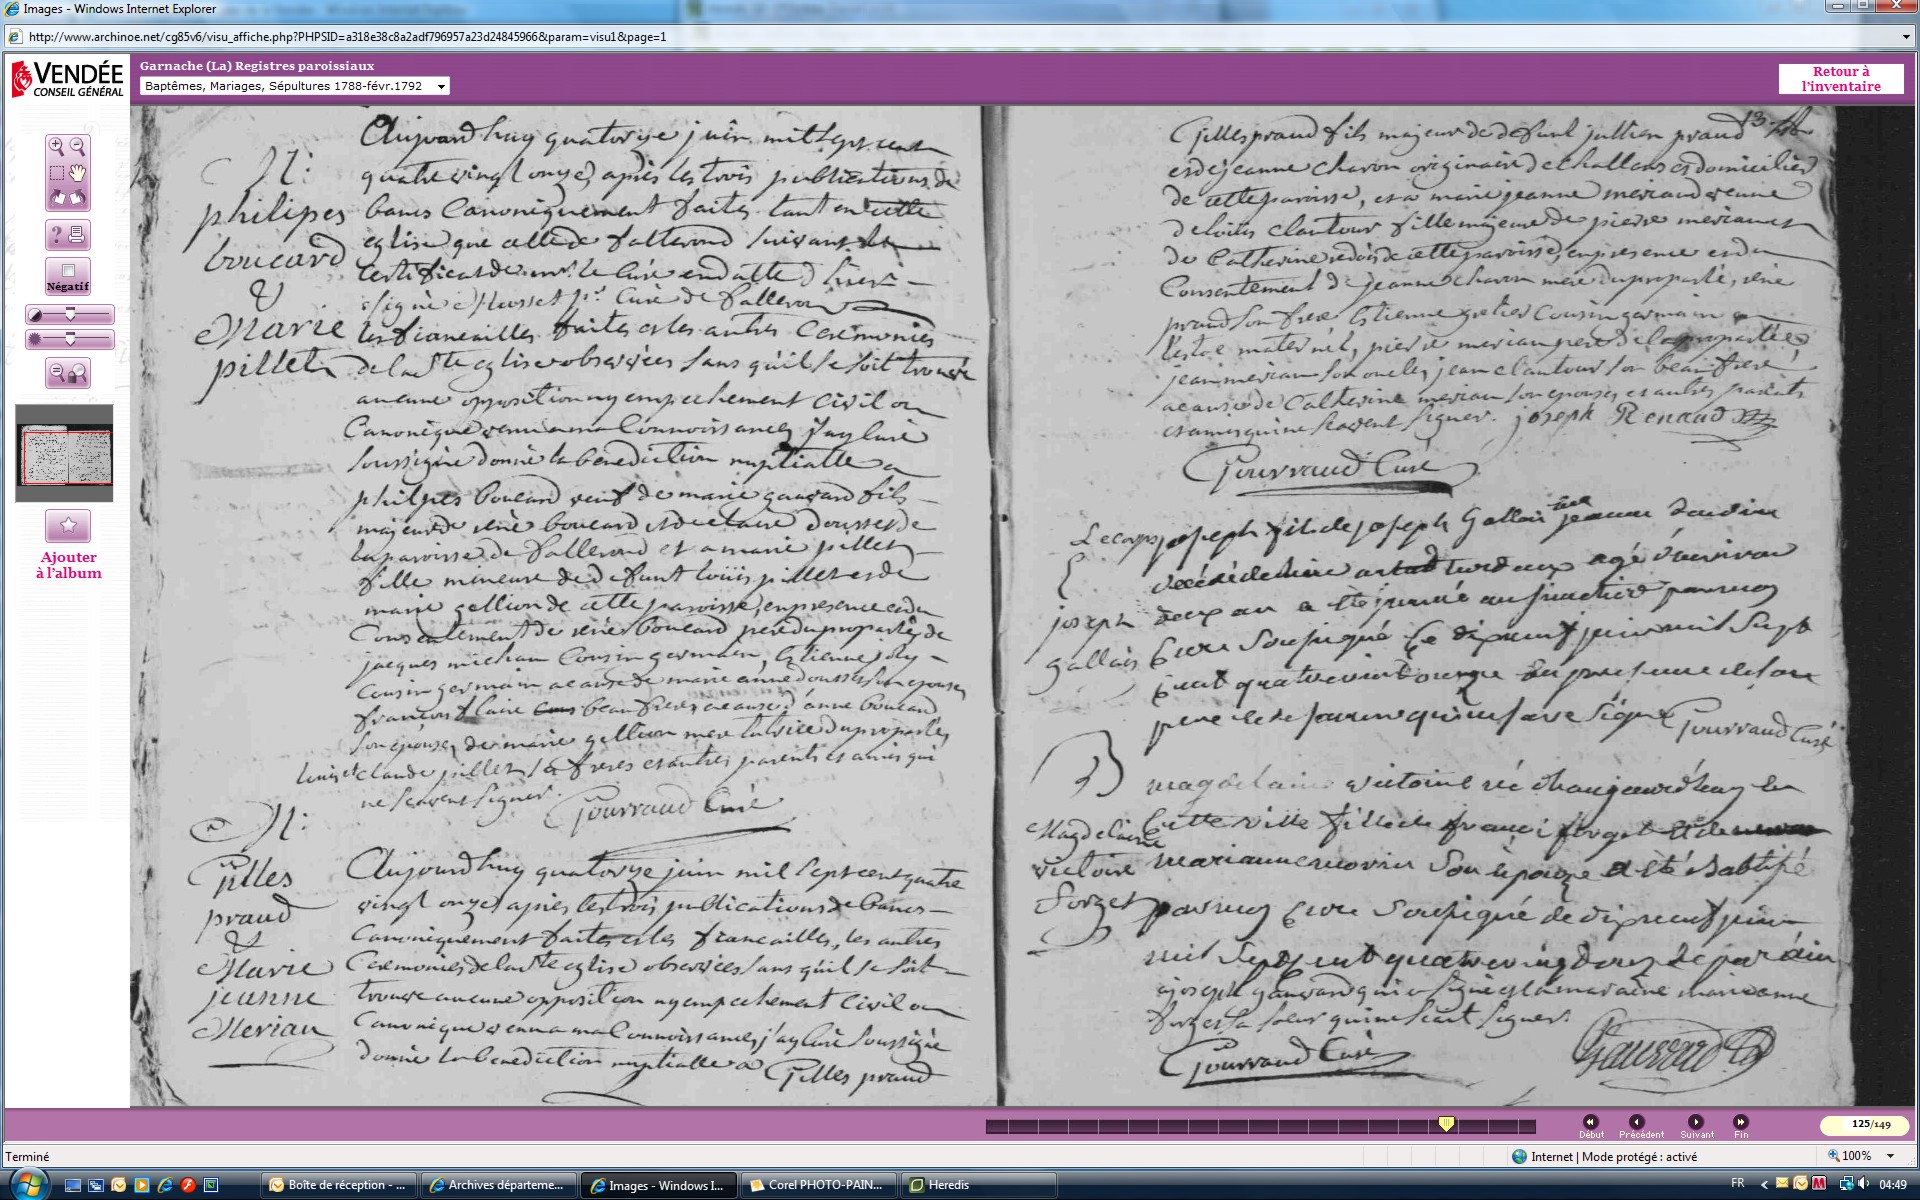 Images - Windows Internet Explorer
http://www.archinoe.net/cg85v6/visu_affiche.php?PHPSID=a318e38c8a2adf796957a23d24845966&param=visu1&page=1
VENDÉE
CONSEIL GÉNÉRAL
Garnache (La) Registres paroissiaux
Baptêmes, Mariages, Sépultures 1788-févr.1792
Retour à
l'inventaire
Négatif
Ajouter
à l'album
M:
philipes
boucard
&
Marie
pillet
Aujourd huy quatorze juin mil sept cent
quatre vingt onze, après les trois publications de
bancs Canoniquement faites tant en cette
eglise que celle de falleron suivant le
certificat de mr. le Curé en datte d hier
signé Mosset pr. Curé de falleron
les fiancailles faites et les autres Ceremonies
de la Ste eglise observées sans qu'il se soit trouvé
aucune opposition ny empechement Civil ou
Canonique venu a ma Connoissance, j'ay Curé
soussigné donné la benediction nuptialle a
philpes boucard veuf de marie gauvard fils
majeur de rené boucard et de claire dousset de
la paroisse de falleron et a marie pillet
fille mineure de defunt loüis pillet et de
marie gellion de cette paroisse, en presence et du
Consentement de rené boucard pere du proparlé, de
jacques michau Cousin germain, Estienne
Cousin germain a cause de marie anne dousset son epouse,
françois beaufrere, a cause d'anne boucard
son epouse, de marie gellion mere tutrice du proparlé,
louis et claude pillet ses freres et autres parents et amis qui
ne scavent signer. Gourraud Curé
M:
Gilles
praud
&
Marie
jeanne
Merian
Aujourd huy quatorze juin mil sept cent quatre
vingt onze, après les trois publications de bancs
Canoniquement faites et les fiancailles, les autres
Ceremonies de la Ste eglise observées sans qu'il se soit
trouvé aucune opposition ny empechement Civil ou
Canonique venu a ma Connoissance, j'ay Curé soussigné
donné la benediction nuptialle a Gilles praud
Gilles praud fils majeur de defunt jullien praud
et de jeanne charon originaire de challans et domicilié
de cette paroisse, et a marie jeanne merian veuve
de loüis clautour fille majeure de pierre merian et
de Catherine de cette paroisse, en presence et du
Consentement de jeanne charon mere du proparlé, rené
praud son frere Estienne Cousin germain
maternel, pierre merian pere de la proparlée,
jean merian son oncle, jean clautour son beau frere
a cause de Catherine merian son epouse, et autres parents
et amis qui ne scavent signer. joseph Renaud
Gourraud Curé
joseph
Gallais
Le corps joseph fils de joseph Gallais et jeanne
décédé agé d'environ
deux an a été inhumé au simetière par moy
Cure Soussigné le dixneuf juin mil sept
cent quatre vingt onze en presence de son
pere qui ne save Signé Gourraud Curé
B
Magdelaine
victoire
forget
magdelaine victoire né aujourd'huy en
cette ville fille de françoi forget et de
marianne morin son épouze a été Batisé
par moy Cure Soussigné le dixneuf juin
mil sept cent quatre vingt onze le parain
a joseph gauvard qui a signé et la maraine marieanne
forget sa soeur qui ne scait signer.
Gourraud Curé
Gauvard
Début
Précédent
Suivant
Fin
125/149
Terminé
Internet | Mode protégé : activé
100%
Boîte de réception - ...
Archives départeme...
Images - Windows I...
Corel PHOTO-PAIN...
Heredis
FR
04:49